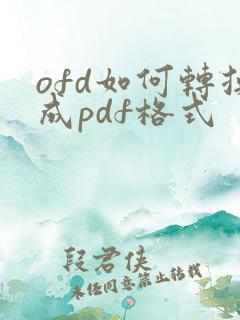 ofd如何轉換
成pdf格式
段君侠
未经同意禁止转载